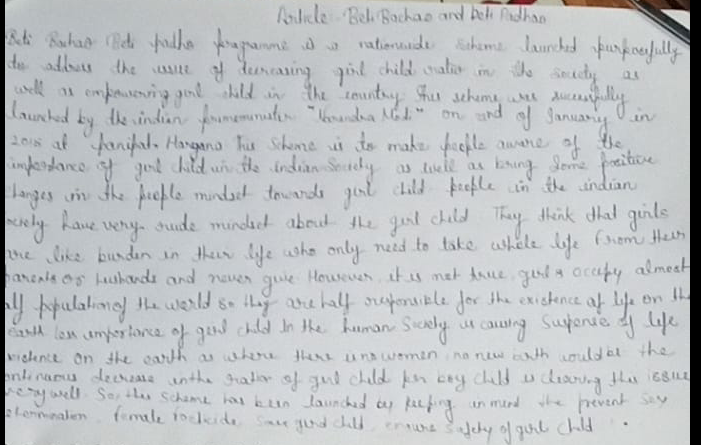 Article - Beti Bachao and beti Padhao
Beti Bachao Beti padho programme is a nationwide scheme launched purposefully
to address the issue of decreasing girl child ratio in the society as
well as empowering girl child in the country This scheme was successfully
launched by the indian primeminister "Narendra Modi" on 22nd of January in
2015 at panipat. Haryana This scheme is to make people aware of the
importance of girl child in the Indian Society as well as bring some positive
changes in the people mindset towards girl child people in the indian
society have very rude mindset about the girl child They think that girls
are like burden in their life who only need to take whole life from their
parents or husbands and never give However, it is not true, girls occupy almost
half population of the world so they are half responsible for the existence of life on the
earth less importance of girl child In the human Society is causing Suspense of life
existence on the earth as where there is no women no new birth would be the
continuous decrease in the ratio of girl child per boy child is clearing this issue
very well. So, this Scheme has been launched by keeping in mind the prevent sex
female save girl child, ensure safety of girl child.